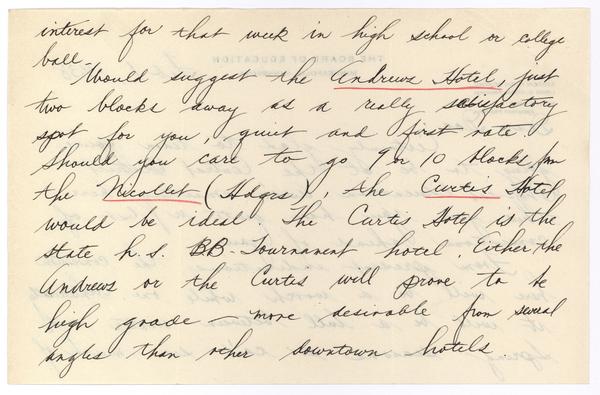 interest for that week in high school or college
ball.
Would suggest the Andrews Hotel, just
two blocks away as a really satisfactory
spot for you, quiet and first rate.
Should you care to go 9 or 10 blocks from
the Nicollet (Hdqrs), the Curtis Hotel
would be ideal. The Curtis Hotel is the
State h.s. BB-Tournament hotel. Either the
Andrews or the Curtis will prove to be
high grade — more desirable from several
angles than other downtown hotels.
THE BOARD OF EDUCATION